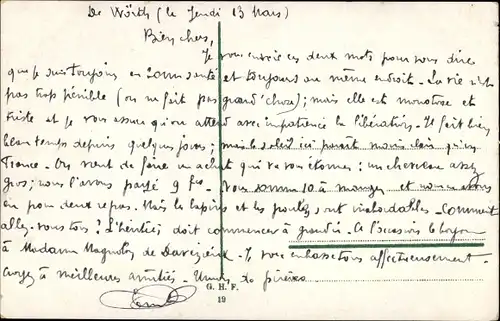 De Wörth (le Jeudi 13 Mars)
Bien chers,
Je vous envoie ces deux mots pour vous dire
que je suis toujours en bonne santé et toujours au même endroit. La vie n'est
pas trop pénible (on ne fait pas grand'chose); mais elle est monotone et
triste et je vous assure qu'on attend avec impatience la libération. Il fait bien
beau temps depuis quelques jours; mais le soleil ici paraît moins clair qu'en
France. On vient de faire un achat qui va vous étonner: un chevreau assez
gros; nous l'avons payé 9 frs. Nous sommes 10 à manger et nous en avons
eu pour deux repas. Mais les lapins et les poules sont inabordables. Comment
allez-vous tous? L'héritier doit commencer à grandir. A l'occasion le bonjour
à Madame Magnolet de Davézieux. Je vous embrasse tous affectueusement.
Croyez à meilleures amitiés. de prières
G. H. F.
19